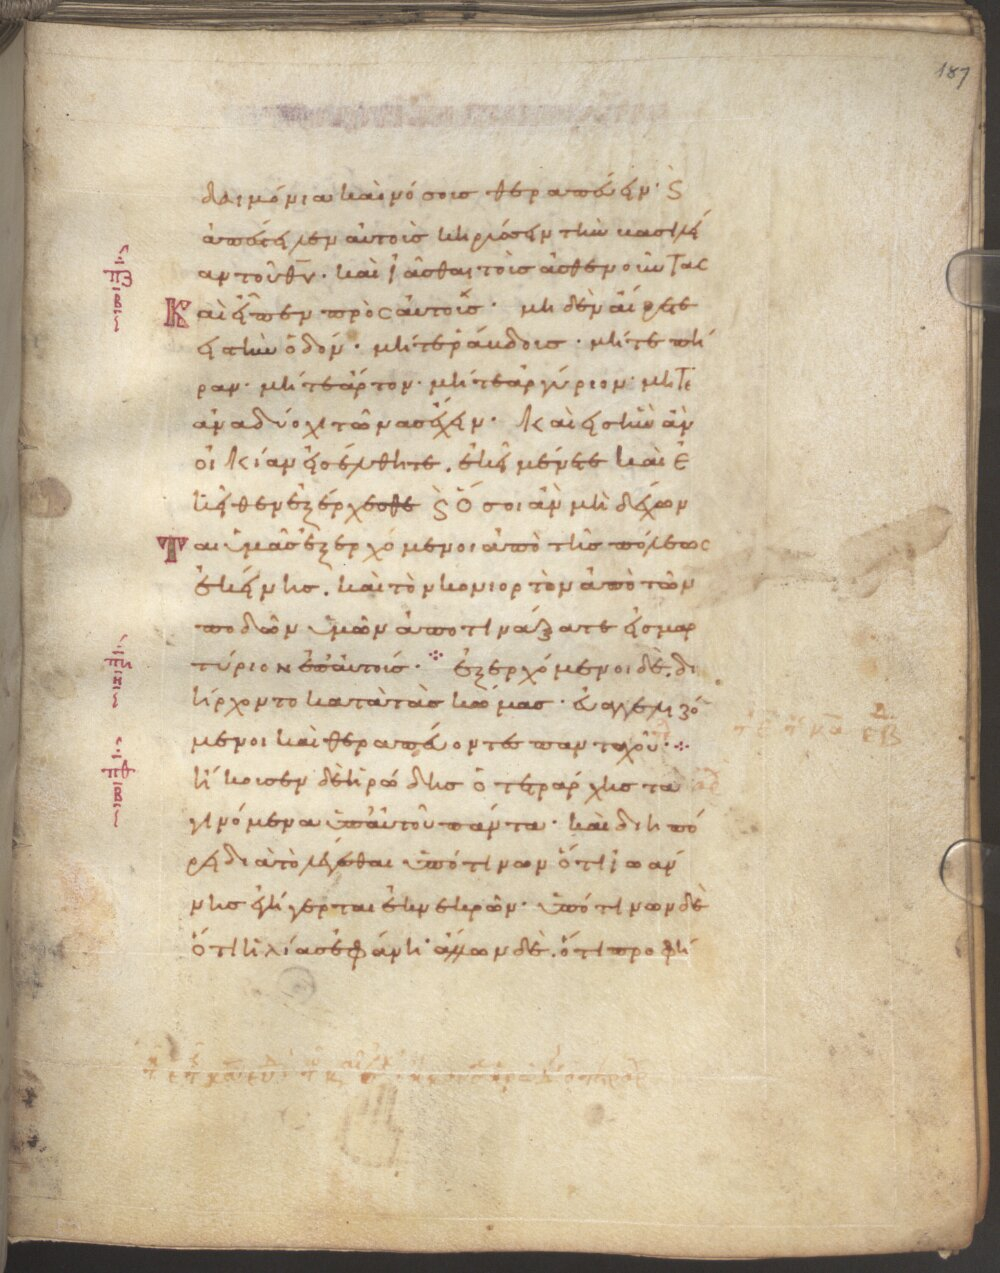 187
δαιμόνια καὶ νόσοις θεραπεύειν· ϛ
ἀπέστειλεν αὐτοὺς κηρύσσειν τὴν βασιλεί
αν τοῦ θυ̅· καὶ ἰᾶσθαι τοὺς ἀσθενοῦντας
Καὶ εἶπεν πρὸς αὐτούς· μηδὲν αἴρετε
εἰς τὴν ὁδόν· μήτε ῥάβδους· μήτε πή
ραν· μήτε ἄρτον· μήτε ἀργύριον· μήτε
ἀνὰ δύο χιτῶνας ἔχειν· Καὶ εἰς ἣν ἂν
οἰκίαν εἰσέλθητε, ἐκεῖ μένετε καὶ ἐ
κεῖθεν ἐξέρχεσθε ϛ ὅσοι ἂν μὴ δέχων
Ται ὑμᾶς ἐξερχόμενοι ἀπὸ τῆς πόλεως
ἐκείνης, καὶ τὸν κονιορτὸν ἀπὸ τῶν
ποδῶν ὑμῶν ἀποτινάξατε εἰς μαρ
τύριον ἐπ' αὐτούς· ἐξερχόμενοι δὲ, δι
ήρχοντο κατὰ τὰς κώμας· εὐαγγελιζό
μενοι καὶ θεραπεύοντες πανταχοῦ·
ἤκουσεν δὲ ἡρώδης ὁ τετράρχης τὰ
γινόμενα ὑπ' αὐτοῦ πάντα· καὶ διηπό
ρει διὰ τὸ λέγεσθαι ὑπό τινων ὅτι ἰωάν
νης ἐγήγερται ἐκ νεκρῶν· ὑπό τινων δὲ
ὅτι ἡλίας ἐφάνη· ἄλλων δὲ, ὅτι προφή